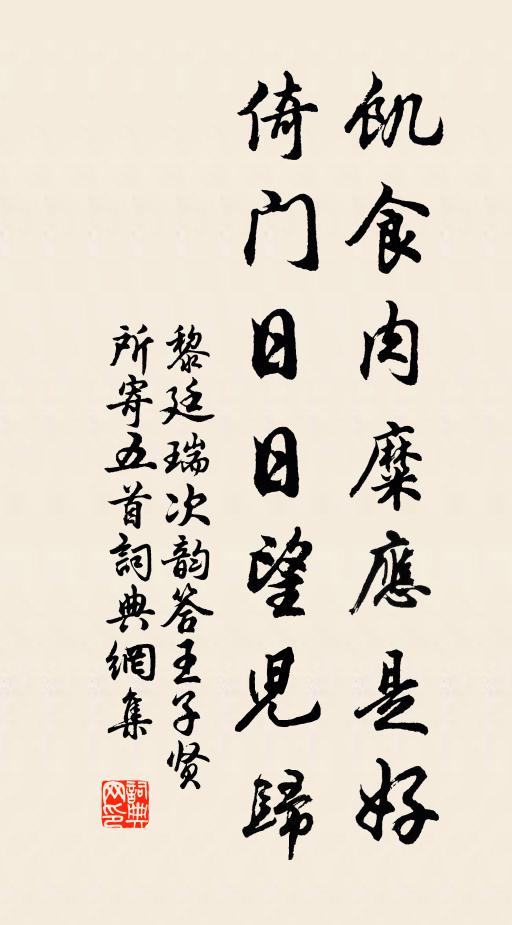 飢食肉糜應是好
倚門日日望児歸
黎廷瑞次韵答王子贤
所寄五首詞典網集
詞典网印